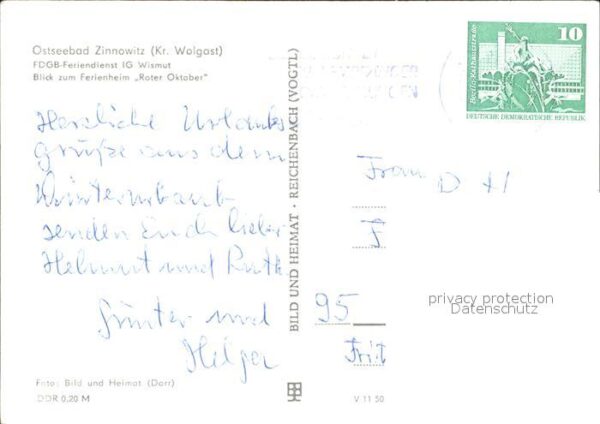 Ostseebad Zinnowitz (Kr. Wolgast)
FDGB-Feriendienst IG Wismut
Blick zum Ferienheim „Roter Oktober"
Herzliche Urlaubs
grüße aus dem
Winterurlaub
senden Euch lieber
Helmut und Ruth
Günter und
Helga
Foto: Bild und Heimat (Darr)
DDR 0,20 M
BILD UND HEIMAT · REICHENBACH (VOGTL)
V 11 50
10
Berlin-Rathausstraße
DEUTSCHE DEMOKRATISCHE REPUBLIK
Frau D
F
95
Frit
privacy protection
Datenschutz